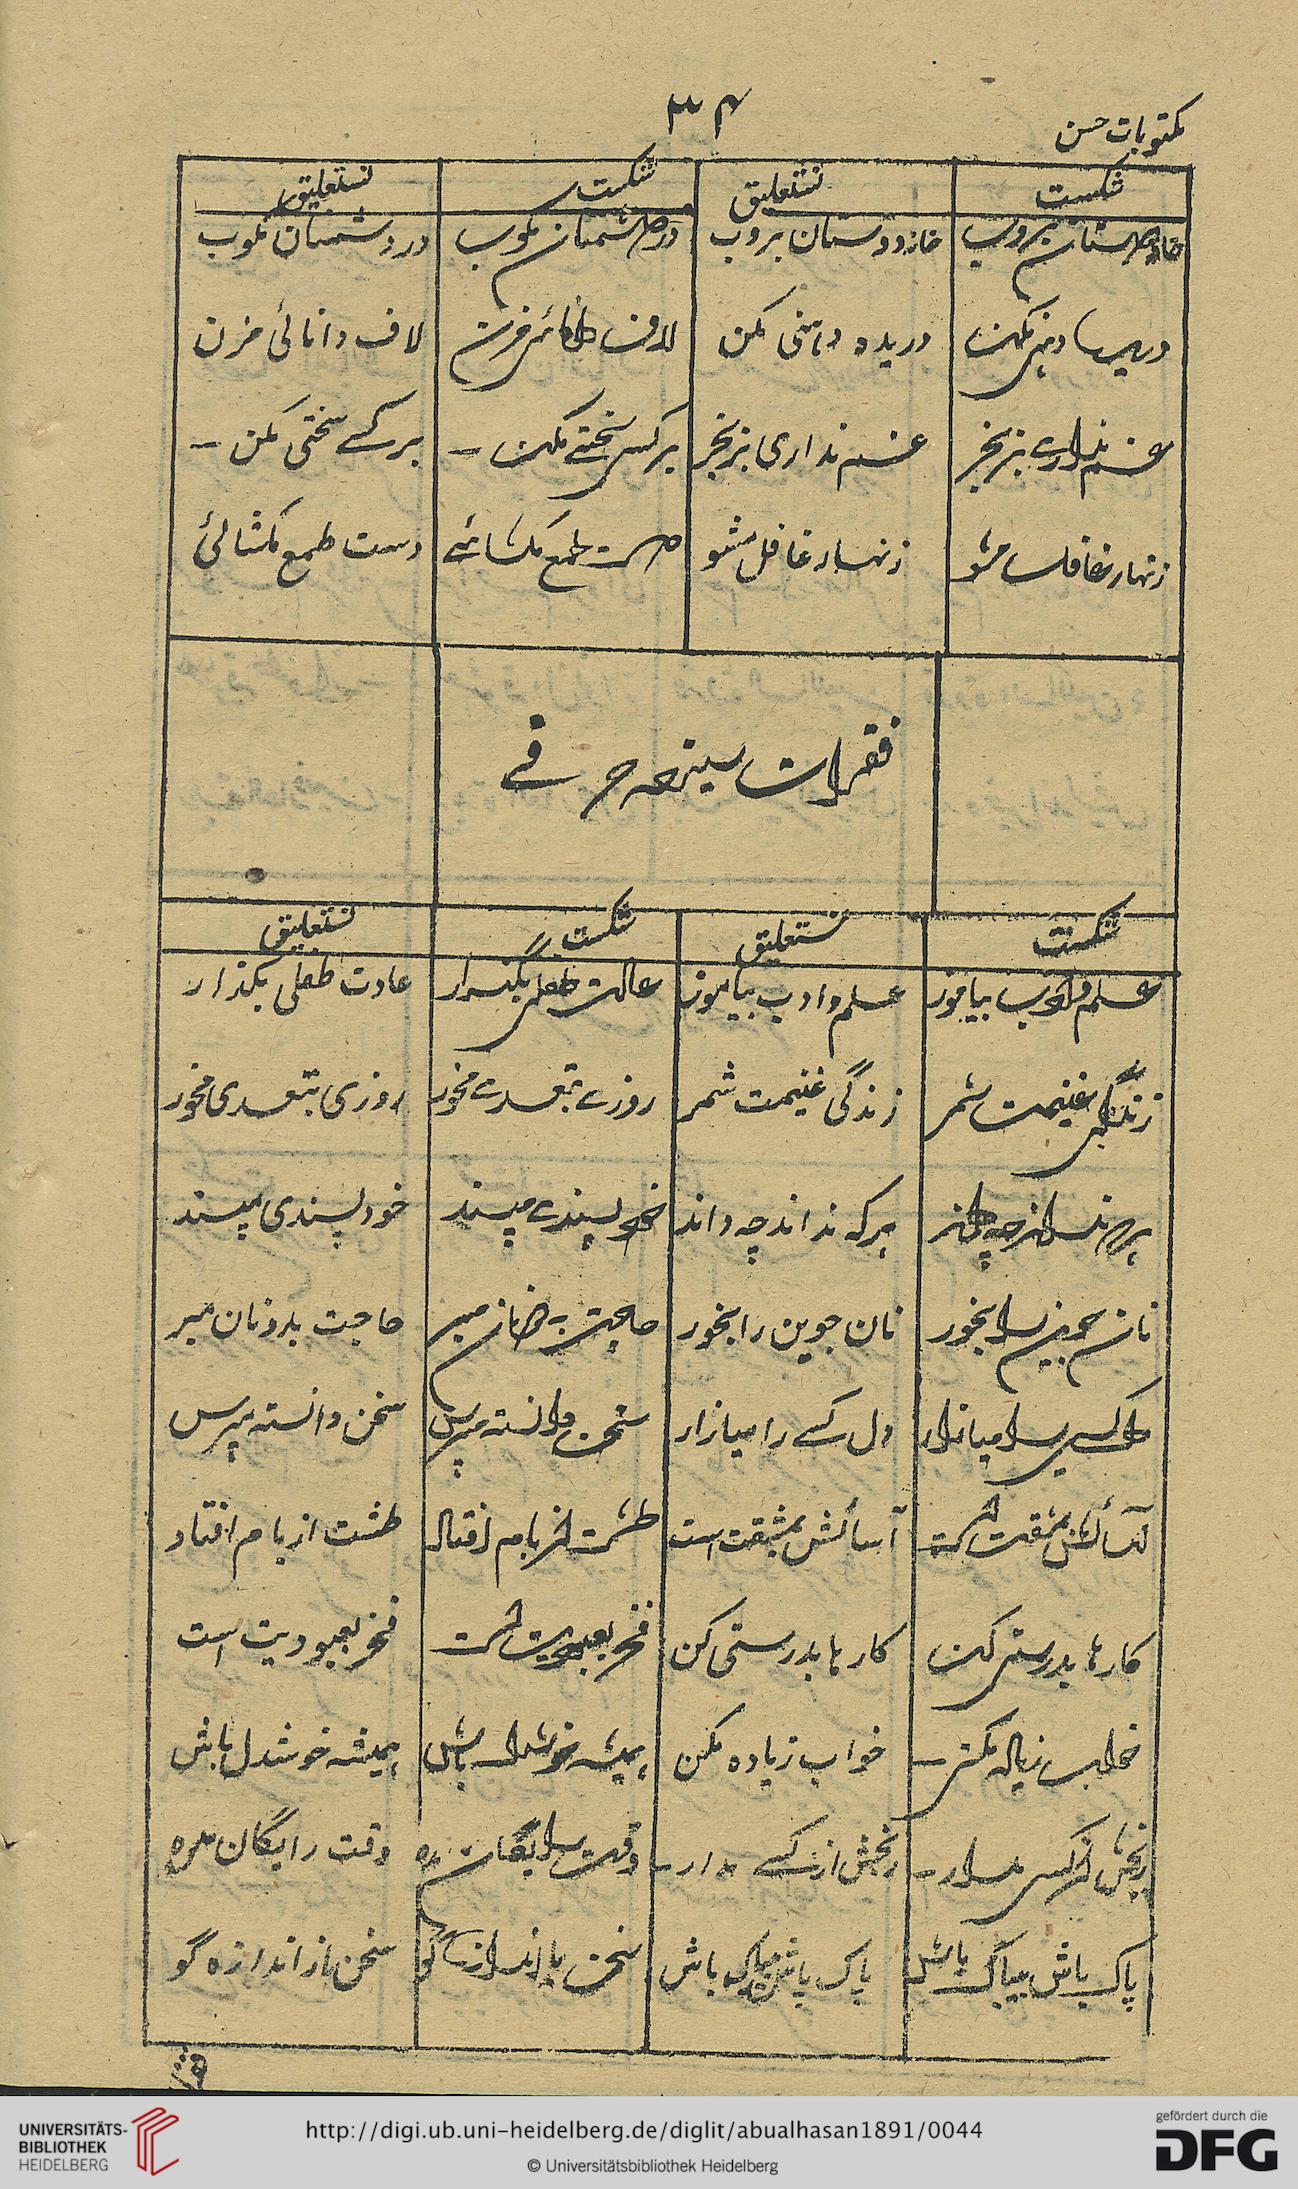 مکتوبات حسن
۴۳
شکست نستعلیق شکست نستعلیق
خانه دوستان بروب خانه دوستان بروب در دشمنان مکوب در دشمنان مکوب
دریده دهنی مکن دریده دهنی مکن لاف دانائی مزن لاف دانائی مزن
غم نداری بز بخر غم نداری بز بخر بر کسے سختی مکن ۔ بر کسے سختی مکن ۔
زنهار غافل مشو زنهار غافل مشو دست طمع مکشائے دست طمع مکشائی
فقرات سیزده حرفے
شکست نستعلیق شکست نستعلیق
علم و ادب بیاموز علم و ادب بیاموز عادت طفلی بگذار عادت طفلی بگذار
زندگی غنیمت شمر زندگی غنیمت شمر روزے بتعدے مخور روزی بتعدی مخور
هرکه نداند چه داند هرکه نداند چه داند خود پسندے مپسند خود پسندی مپسند
نان جوین را بخور نان جوین را بخور حاجت بدونان مبر حاجت بدونان مبر
دل کسے را میازار دل کسے را میازار سخن دانسته بپرس سخن دانسته بپرس
آسائش بمشقت است آسائش بمشقت است طشت از بام افتاد طشت از بام افتاد
کارها بدرستی کن کارها بدرستی کن فخر بعبودیت است فخر بعبودیت است
خواب زیاده مکن ۔ خواب زیاده مکن همیشه خوشدل باش همیشه خوشدل باش
رنجش از کسے مدار ۔ رنجش از کسے مدار ۔ وقت رایگان مده وقت رایگان مده
پاک باش بیباک باش پاک باش بیباک باش سخن باندازه گو سخن باندازه گو
UNIVERSITÄTS-
BIBLIOTHEK
HEIDELBERG
http://digi.ub.uni-heidelberg.de/diglit/abualhasan1891/0044
© Universitätsbibliothek Heidelberg
gefördert durch die
DFG